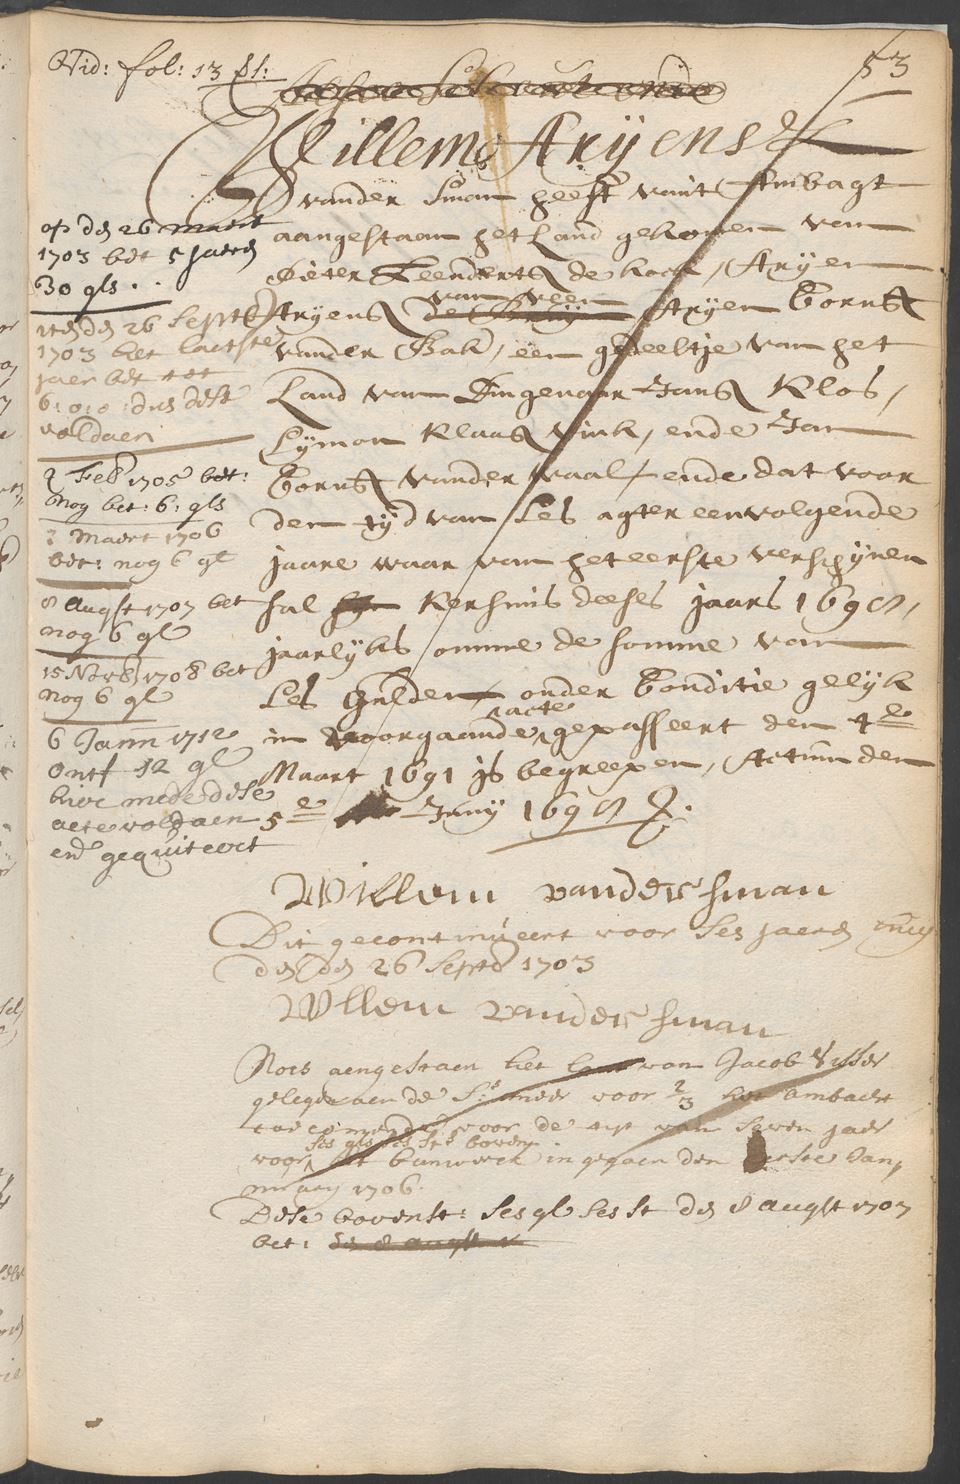 Vid: fol: 13 st:
53
Willems Aryensz
vander Sman heeft vant Ambagt
aangestaan het Land gekomen van
Pieter Leenderts de hoog, Aryen
van veen
Aryens Aryen Corns
vander Bak, een gedeeltje van het
Land van Dingenaar Jans Klos,
Symon Klaas Vink, ende Jan
Corns vander waal, ende dat voor
den tyd van Ses agter eenvolgende
jaare waar van het eerste verschynen
sal Kersmis deeses jaars 1698,
jaarlyks omme de somme van
Ses Gulden onder Conditie gelyk
acte
in voorgaande gepasseert den 4e
Maart 1691 is begreepen, Actum den
5e Juny 1698
Willem vander sman
Dit gecontinueert voor ses jaeren
den 26 Septr 1703
Wllem vander sman
Noes aengestaen het van Jacob Visser
gelegen aen de voor 2/3 het ambacht
voor de tyt van seven jaer
ses gls ses st: boven
voor in gegaen den eerste Jan,
nuary 1706.
Dese bovenst: ses gl ses st den 8 augst 1707
bet: den 8 augst
op den 26 maert
1703 bet 5 jaeren
30 gls
den 26 Septr
1703 het laetste
jaer bet
6:0:0: dus dese
voldaen
2 Feb 1705 bet:
nog bet: 6: gls
Maert 1706
bet: nog 6 gl
8 augst 1707 bet
nog 6 gl
15 Novr 1708 bet
nog 6 gl
6 Jann 1712
ontf 12 gl
hier mede dese
acte voldaen
en gequiteert